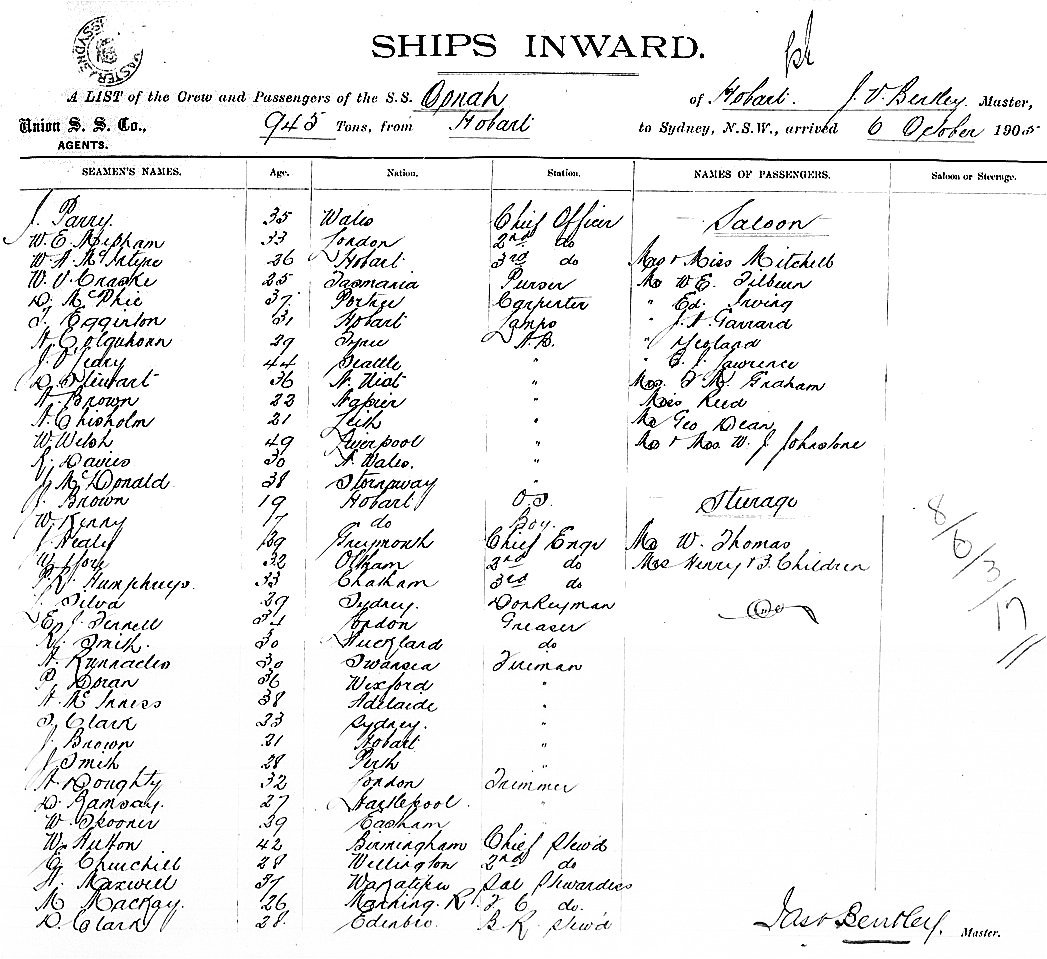 SHIPS INWARD.
A LIST of the Crew and Passengers of the S.S. Oonah of Hobart. J. V. Bentley Master,
Union S. S. Co., 945 Tons, from Hobart to Sydney, N.S.W., arrived 6 October 1905
AGENTS.
SEAMEN'S NAMES. Age. Nation. Station. NAMES OF PASSENGERS. Saloon or Steerage.
J. Parry 35 Wales Chief Officer Saloon
W. E. 33 London 2nd do
W. A. McIntyre 26 Hobart 3rd do Mrs & Miss Mitchell
25 Tasmania Purser Mr W E. Tilburn
D. McPhie 37 Carpenter " Ed. Irving
T. Egginton 31 Hobart Lamps " J. A. Garrard
A. Colquhoun 29 Tyne A.B. "
44 Seattle " " E. J. Lawrence
D. Stewart 36 N. Uist " Graham
A. Brown 22 Napier " Miss Reed
A. Chisholm 21 Leith " Mr Geo Dean
W. Welsh 49 Liverpool " Mr & Mrs W. J. Johnstone
Davies 30 N. Wales. "
J. McDonald 38 Stornoway "
J. Brown 19 Hobart O.S. Sturage
W. Kenny 17 do Boy.
J. Healy 39 Greymouth Chief Engr Mr W. Thomas
32 Oldham 2nd do Mrs Henry & 3 Children
R. Humphreys 33 Chatham 3rd do
J. Silva 29 Sydney. Donkeyman
E. J. Fennell 34 London Greaser
Smith. 30 Auckland do
A. 30 Swansea Fireman
P. Doran 36 Wexford "
A. McInness 38 Adelaide "
T. Clark 23 Sydney. "
J. Brown 21 Hobart "
J. Smith 28 Perth "
A. Doughty 32 London Trimmer
D. Ramsay 27 Hartlepool. "
W. Spooner 39
W. Hutton 42 Birmingham Chief Stew'd
G. Churchill 28 Wellington 2nd do
A. Maxwell 37 Wakatipu Sal Stewardess
M. Mackay. 26 Manning R. 2 C do.
D. Clark 28 Edinbro. B. R. Stew'd
8/6/3/17//
Jas V Bentley. Master.